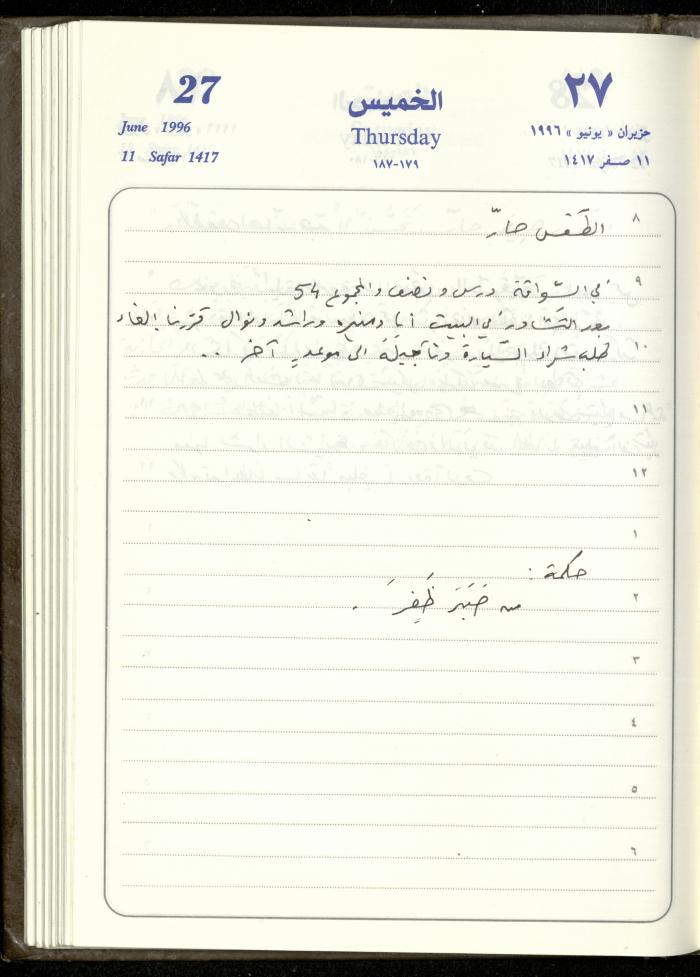 27
June 1996
11 Safar 1417
الخميس
Thursday
١٧٩-١٨٧
٢٧
حزيران « يونيو » ١٩٩٦
١١ صفر ١٤١٧
٨
الطَّقس حارّ
٩
في السّواقة درس ونصف والمجموع 54
بعد التّشاور في البيت أنا ومنيره وراشد ونوال قرّرنا إلغاء
١٠
طلب شراء السّيارة وتأجيلَهُ الى موعدٍ آخر ..
١١
١٢
١
حكمة :
٢
من صَبَرَ ظَفِرَ .
٣
٤
٥
٦